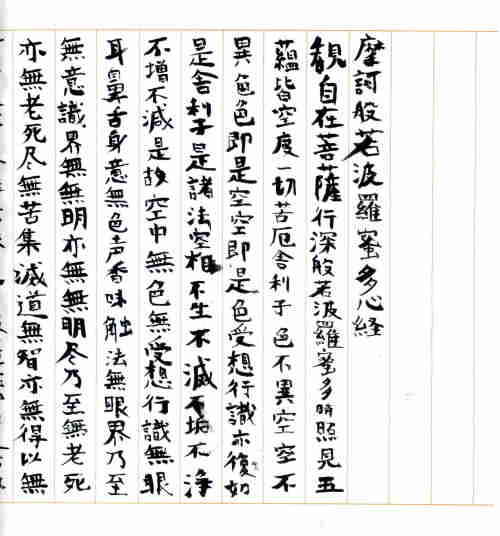 摩訶般若波羅蜜多心経
観自在菩薩行深般若波羅蜜多時照見五
蘊皆空度一切苦厄舎利子色不異空空不
異色色即是空空即是色受想行識亦復如
是舎利子是諸法空相不生不滅不垢不浄
不増不減是故空中無色無受想行識無眼
耳鼻舌身意無色声香味触法無眼界乃至
無意識界無無明亦無無明尽乃至無老死
亦無老死尽無苦集滅道無智亦無得以無